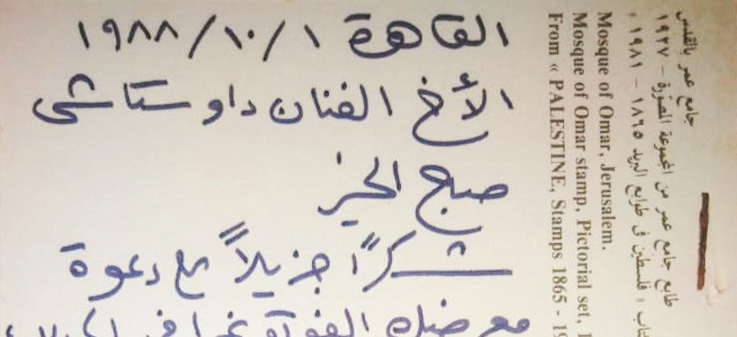 القاهرة ١/١٠/١٩٨٨
الأخ الفنان داوستاشى
صبح الخير
شكراً جزيلاً مع دعوة
جامع عمر بالقدس
طابع جامع عمر من المجموعة المصورة - ١٩٢٧
فلسطين فى طوابع البريد ١٨٦٥ - ١٩٨١
Mosque of Omar, Jerusalem.
Mosque of Omar stamp, Pictorial set,
From « PALESTINE, Stamps 1865 -